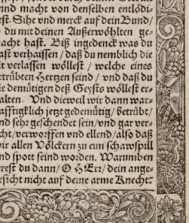 vnd macht von denselben entlödi-
gest. Sihe vnd merck auf dein Bund/
du mit deinen Außerwöhlten ge-
macht hast. Biß ingedenck was du
ast verhaissen / daß du nemblich die
t verlassen wöllest / welche eines
etrübten Hertzen seind / vnd daß du
ie demütigen deß Geysts wöllest er-
alten. Vnd dieweil wir dann war-
afftigklich jetzt gedemütig / betrübt/
nd sehr geschendet sein / vnd gar ver-
cht / verworffen vnd ellend / also daß
ir allen Völckern zu eim schawspill
nd spott seind worden. Warumben
rest du dann / O HErr / dein ange-
sicht nicht auf deine arme Knecht